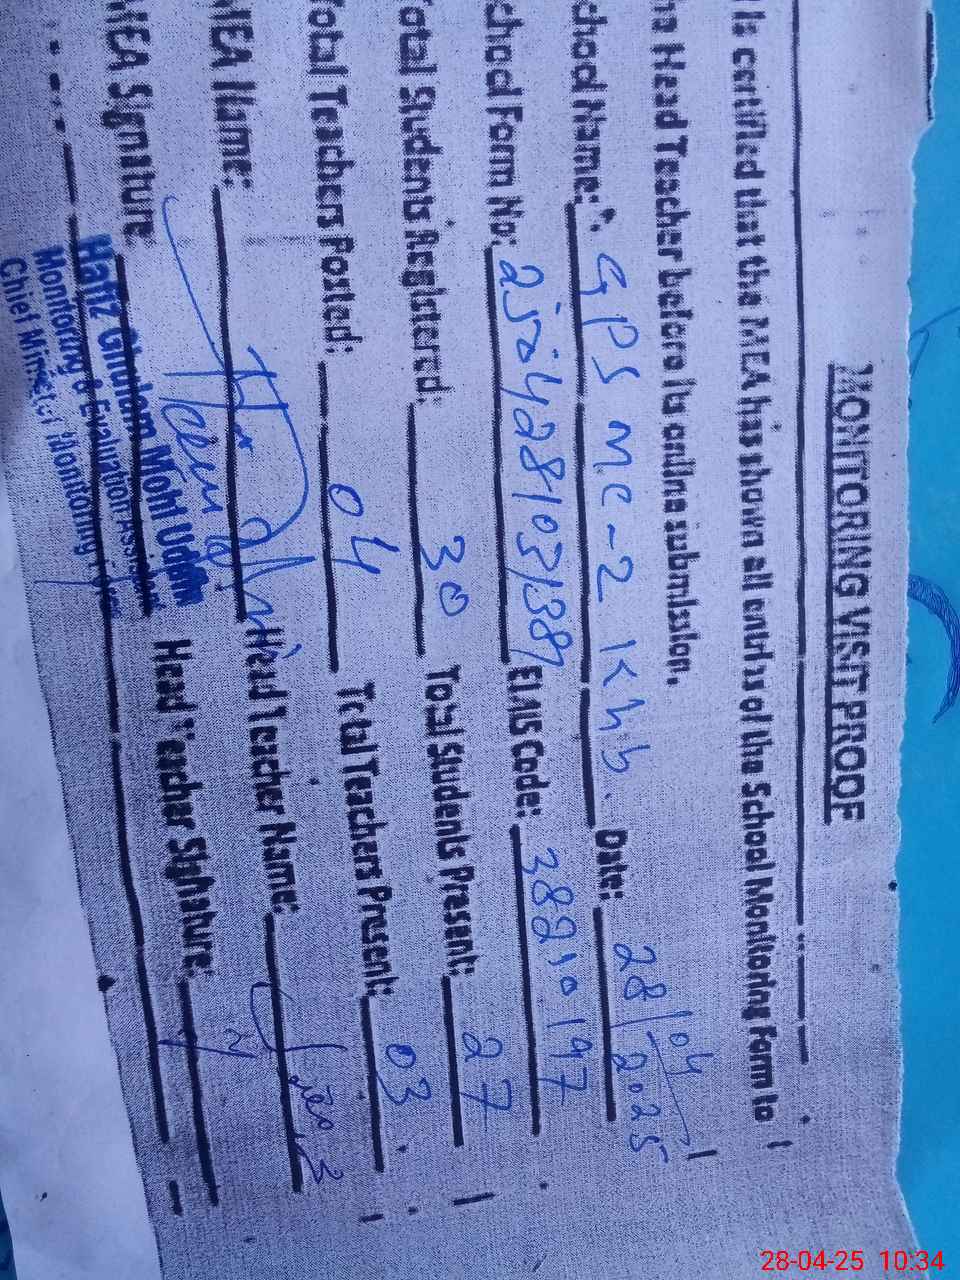 MONITORING VISIT PROOF
Is certified that the MEA has shown all entries of the School Monitoring Form to
Head Teacher before its online submission.
chool Name: GPS MC-2 Khb. Date: 28/04/2025
chool Form No: EMIS Code: 38210197
otal Students Registered: 30 Total Students Present: 27
Total Teachers Posted: 04 Total Teachers Present: 03
MEA Name: Head Teacher Name:
MEA Signature Head Teacher Signature:
Hafiz Ghulam Mohi Uddin
Monitoring & Evaluation Assistant
Chief Minister Monitoring Force
28-04-25 10:34